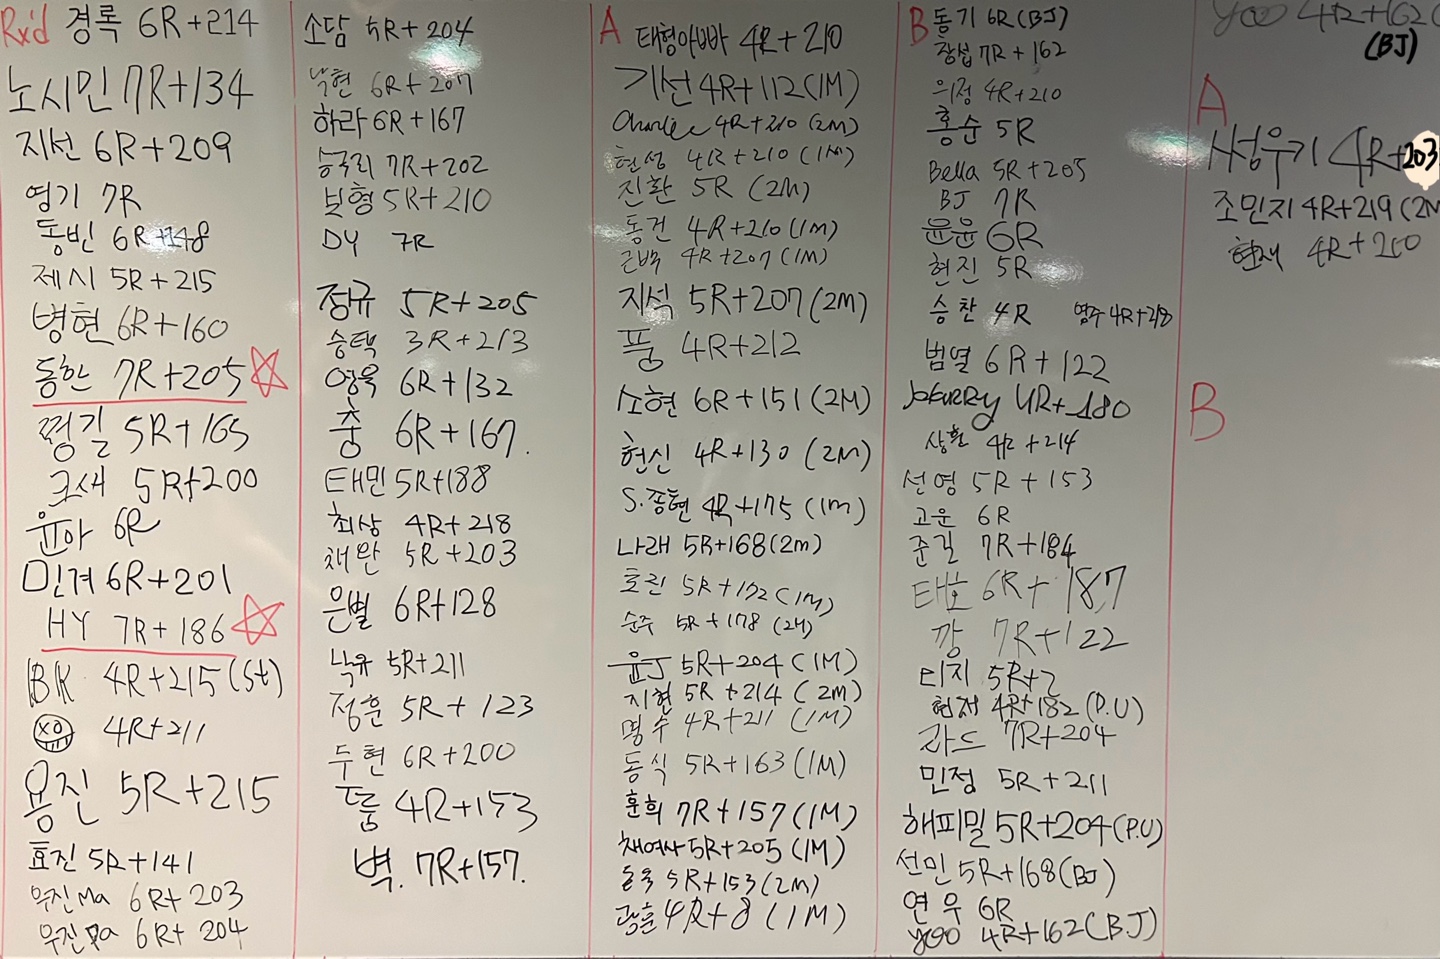 Rx'd 경록 6R+214
노시민 7R+134
지선 6R+209
영기 7R
동빈 6R+148
제시 5R+215
병현 6R+160
동한 7R+205
쩡길 5R+165
크새 5R+200
윤아 6R
민겨 6R+201
HY 7R+186
BK 4R+215(St)
XO 4R+211
용진 5R+215
효진 5R+141
우진Ma 6R+203
우진Pa 6R+204
소담 5R+204
낙현 6R+207
하라 6R+167
승국리 7R+202
보형 5R+210
DY 7R
정규 5R+205
승택 3R+213
영욱 6R+132
충 6R+167.
태민 5R+188
최상 4R+218
채완 5R+203
은별 6R+128
낙유 5R+211
정훈 5R+123
두현 6R+200
뚬 4R+153
벽. 7R+157.
A 태형아빠 4R+210
기선 4R+112(1M)
Charlee 4R+210(2M)
현성 4R+210(1M)
진환 5R (2M)
동건 4R+210(1M)
근백 4R+207(1M)
지석 5R+207(2M)
풍 4R+212
소현 6R+151(2M)
현신 4R+130(2M)
S.종현 4R+175(1M)
나래 5R+168(2m)
호린 5R+172(1M)
순주 5R+178(2M)
윤J 5R+204(1M)
지현 5R+214(2M)
명수 4R+211(1M)
동식 5R+163(1M)
훈희 7R+157(1M)
채여사 5R+205(1M)
5R+153(2M)
광훈 4R+8(1M)
B 동기 6R(BJ)
창섭 7R+162
의정 4R+210
홍순 5R
Bella 5R+205
BJ 7R
윤윤 6R
현진 5R
승찬 4R 영주 4R+218
범열 6R+122
JoKurry 4R+180
상훈 4R+214
선영 5R+153
고운 6R
준길 7R+184
태호 6R+187
깡 7R+122
티지 5R+2
현저 4R+182(P.U)
라드 7R+204
민정 5R+211
해피밀 5R+204(P.U)
선민 5R+168(BJ)
연우 6R
yoo 4R+162(BJ)
yoo 4R+162(
(BJ)
A
서성우기 4R+203
조민지 4R+219(2M
현재 4R+210
B